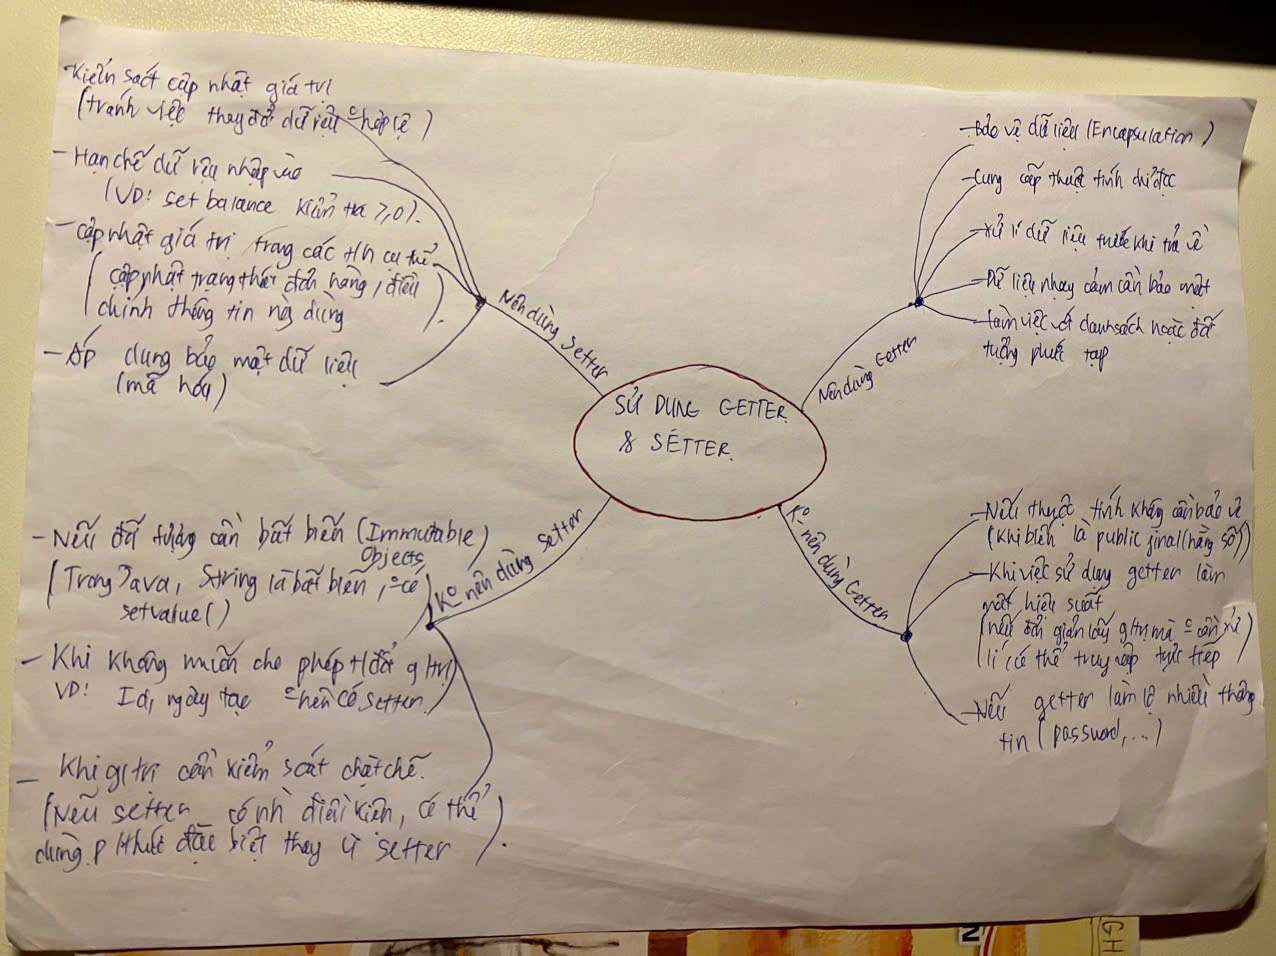 SỬ DỤNG GETTER
& SETTER.
Nên dùng Setter
- Kiểm soát cập nhật giá trị
(tránh việc thay đổi dữ liệu º hợp lệ)
- Hạn chế dữ liệu nhập vào
(VD: set balance kiểm tra ≥ 0).
- Cập nhật giá trị trong các t/h cụ thể
(cập nhật trạng thái đơn hàng, điều
chỉnh thông tin ng dùng).
- Áp dụng bảo mật dữ liệu
(mã hóa)
Nên dùng Getter
- Bảo vệ dữ liệu (Encapsulation)
- Cung cấp thuộc tính chỉ đọc
- Xử lí dữ liệu trước khi trả về
- Dữ liệu nhạy cảm cần bảo mật
- Làm việc với danh sách hoặc đối
tượng phức tạp
Kº nên dùng Setter
- Nếu đối tượng cần bất biến (Immutable
Objects)
(Trong Java, String là bất biến, º có
setvalue()
- Khi không muốn cho phép t/đổi g/trị
VD: Id, ngày tạo º nên có setter.)
- Khi g/trị cần kiểm soát chặt chẽ.
(Nếu setter có nh điều kiện, có thể
dùng p/thức đặc biệt thay vì setter).
Kº nên dùng Getter
- Nếu thuộc tính không cần bảo vệ
(khi biến là public final (hằng số))
- Khi việc sử dụng getter làm
mất hiệu suất
(nếu đơn giản lấy g/trị mà º cần xử
lí có thể truy cập trực tiếp)
- Nếu getter làm lộ nhiều thông
tin (password,...)
N
GH